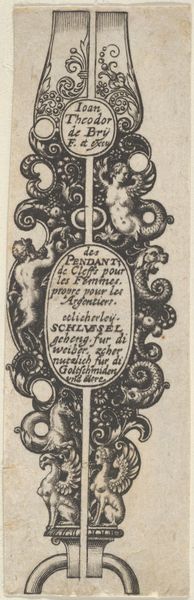 Ioan
Theodor
de Brÿ
F. et excu
des
PENDANT
de Cleffs pour
les Femmes.
propre pour les
Argentiers.
etlicherleÿ
SCHLVESEL
geheng. fur di
weiber. zẽher
nutzlich fur di
Goltschmiden
vnd